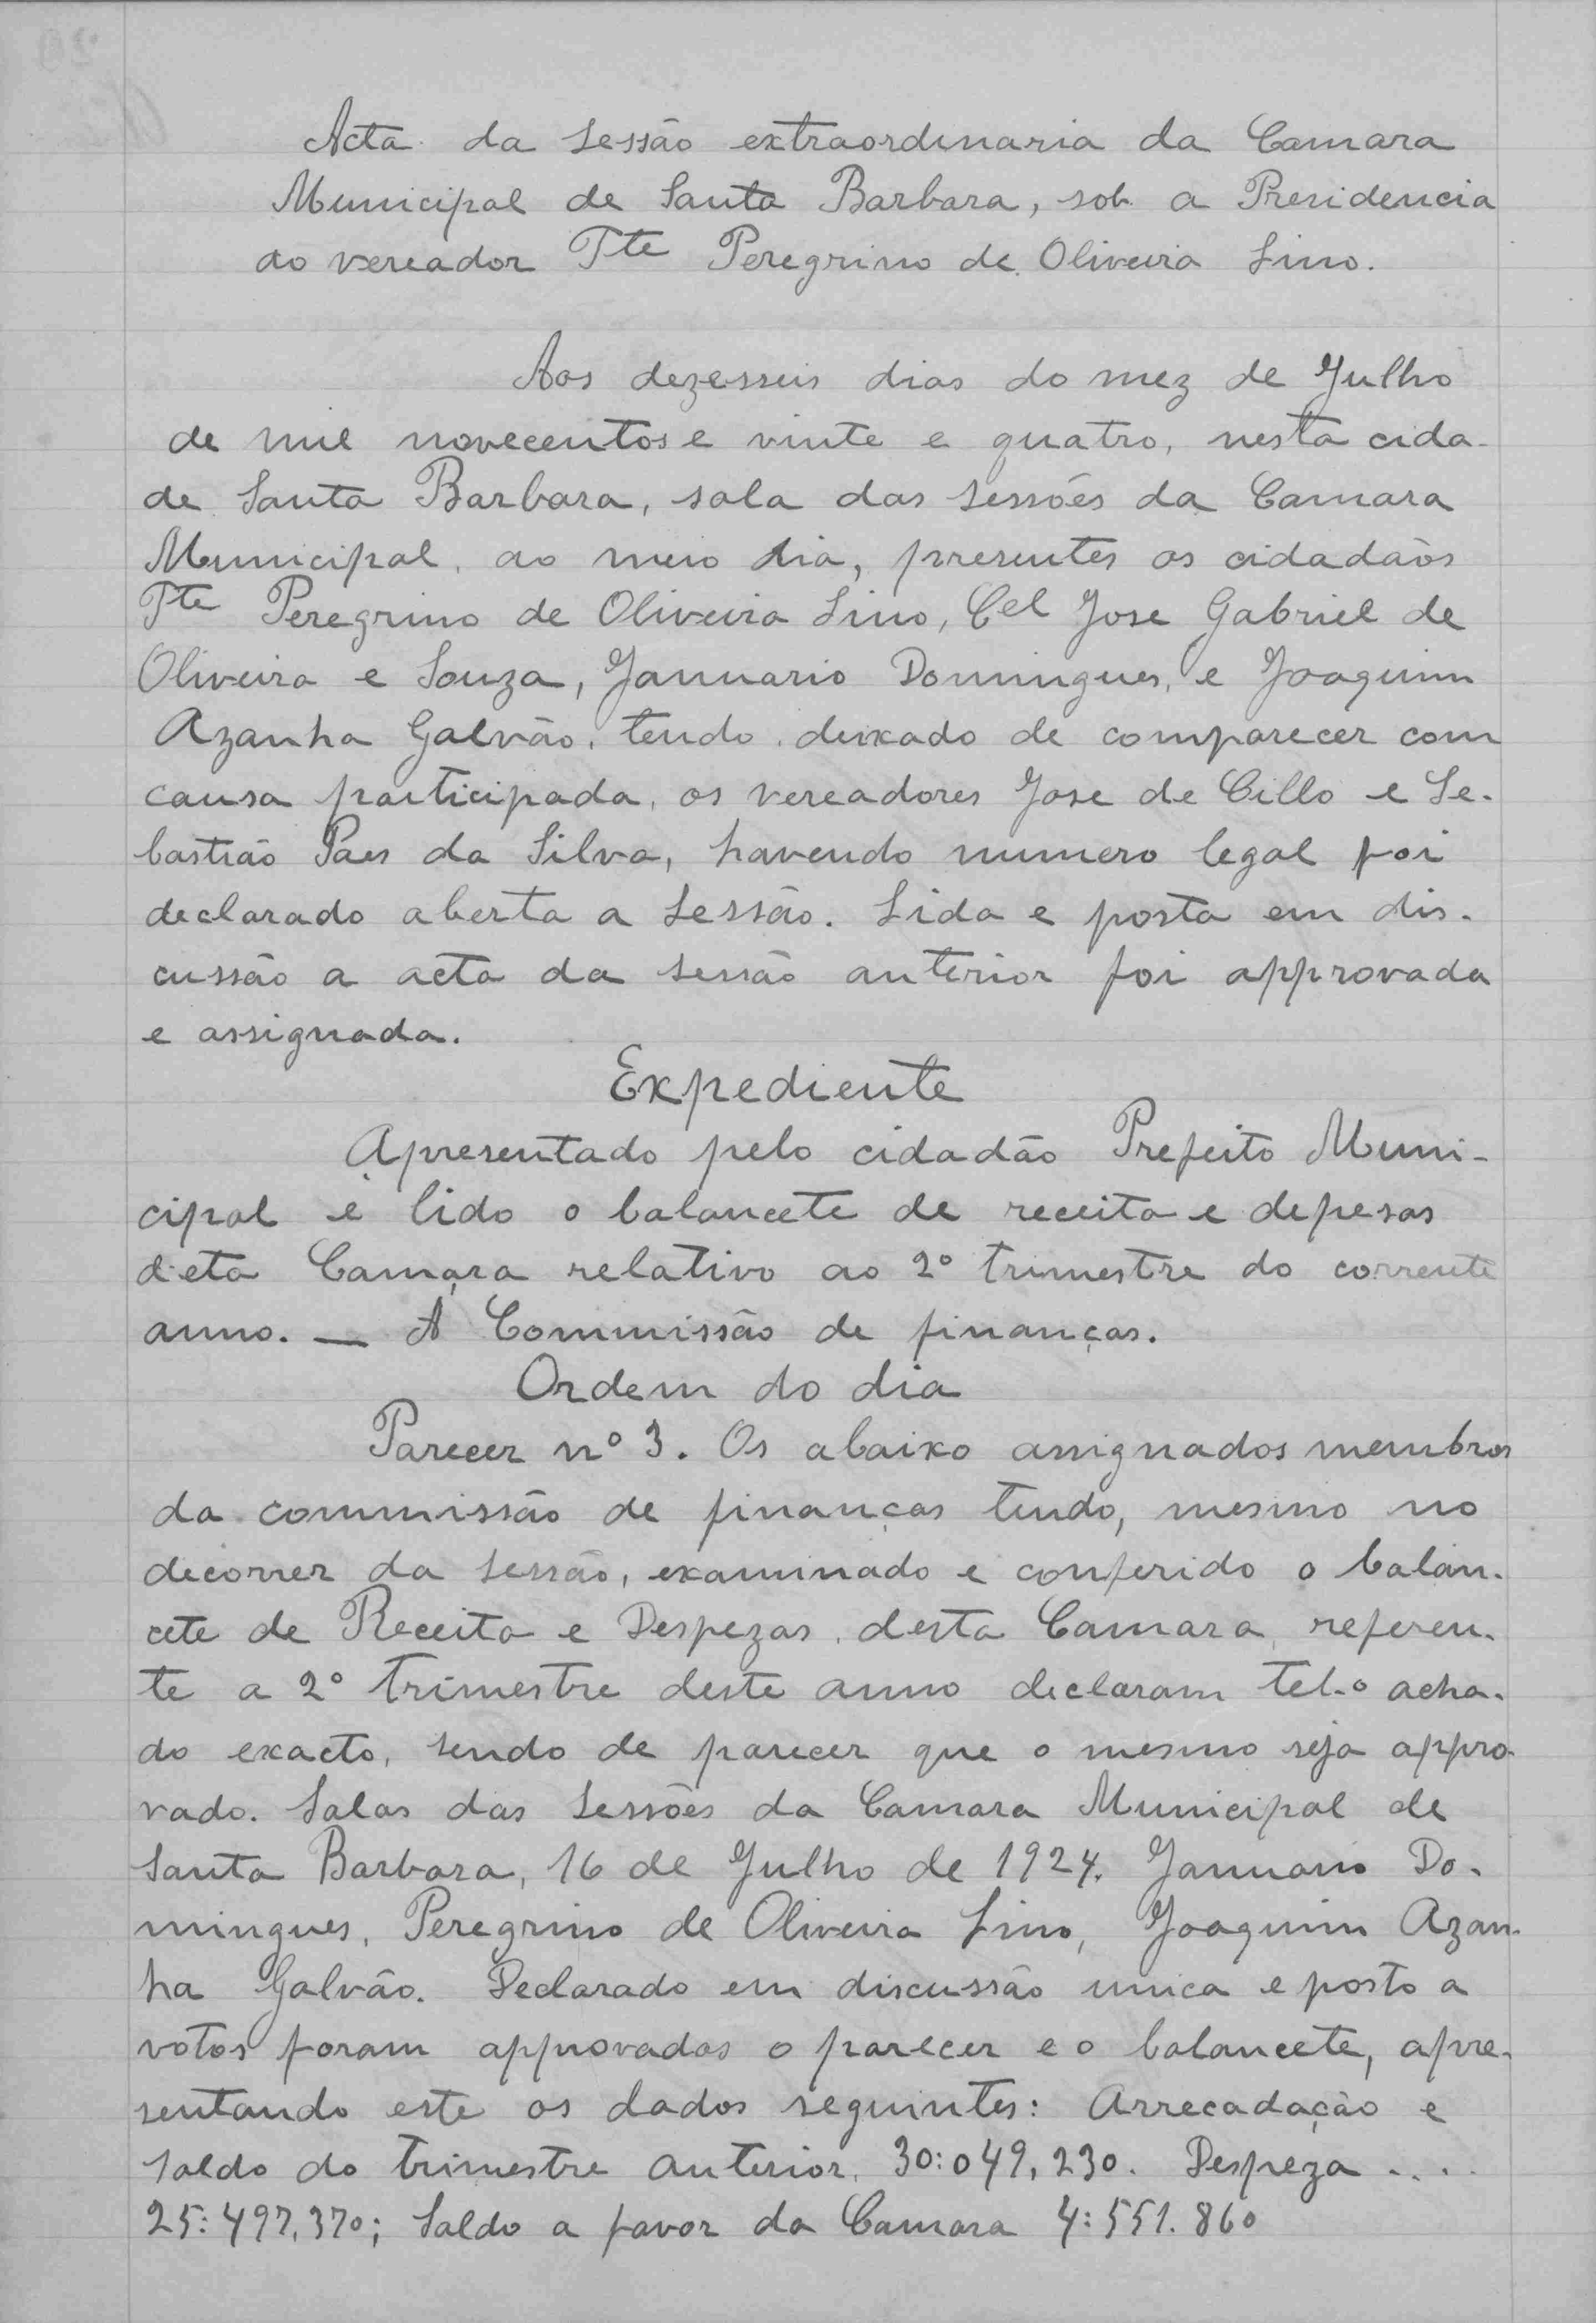 Acta da Sessão extraordinaria da Camara
Municipal de Santa Barbara, sob a Presidencia
do vereador Tte Peregrino de Oliveira Lino.
Aos dezesseis dias do mez de Julho
de mil novecentos e vinte e quatro, nesta cida-
de Santa Barbara, sala das Sessões da Camara
Municipal, ao meio dia, presentes os cidadãos
Tte Peregrino de Oliveira Lino, Cel Jose Gabriel de
Oliveira e Souza, Januario Domingues, e Joaquim
Azanha Galvão, tendo deixado de comparecer com
causa participada, os vereadores Jose de Cillo e Se-
bastião Paes da Silva, havendo numero legal foi
declarado aberta a Sessão. Lida e posta em dis-
cussão a acta da sessão anterior foi approvada
e assignada.
Expediente
Apresentado pelo cidadão Prefeito Muni-
cipal é lido o balancete de receita e depesas
deta Camara relativo ao 2º trimestre do corrente
anno. — A Commissão de finanças.
Ordem do dia
Parecer nº 3. Os abaixo assignados membros
da commissão de finanças tendo, mesmo no
decorrer da Sessão, examinado e conferido o balan-
cete de Receita e Despezas, desta Camara, referen-
te a 2º trimestre deste anno declaram tel-o acha-
do exacto, sendo de parecer que o mesmo seja appro-
vado. Salas das Sessões da Camara Municipal de
Santa Barbara, 16 de Julho de 1924. Januario Do-
mingues, Peregrino de Oliveira Lino, Joaquim Azan-
ha Galvão. Declarado em discussão unica e posto a
votos foram approvados o parecer e o balancete, apre-
sentando este os dados seguintes: Arrecadação e
Saldo do trimestre anterior, 30:049,230. Despeza ....
25:497,370; Saldo a favor da Camara 4:551.860